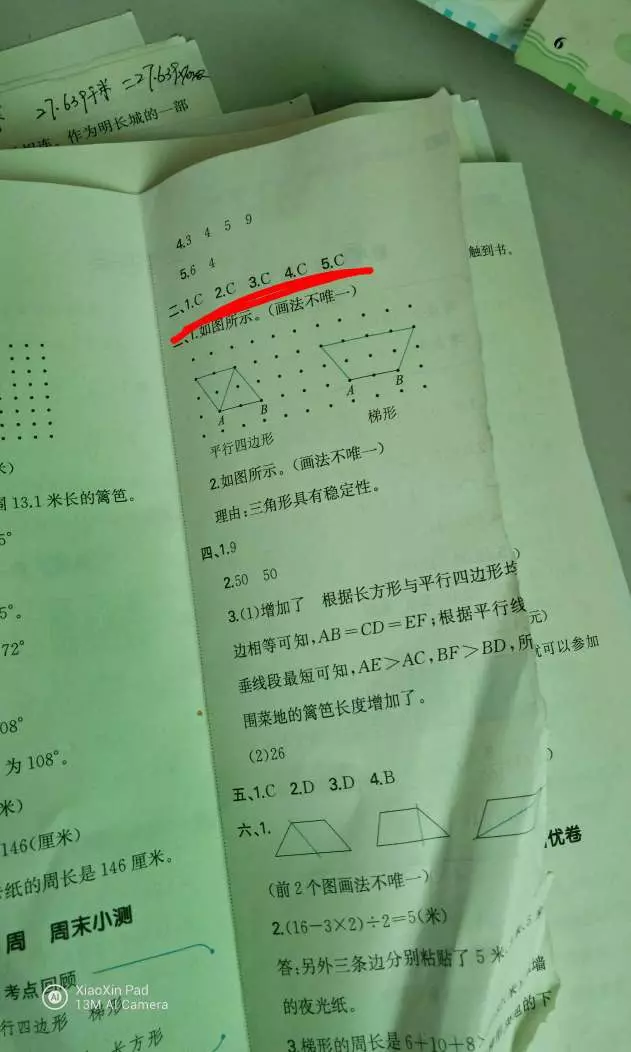 27.639千米
6
作为明长城的一部
4.3 4 5 9
5.6 4
触到书。
二、1.C 2.C 3.C 4.C 5.C
1.如图所示。(画法不唯一)
A B
平行四边形
A B
梯形
2.如图所示。(画法不唯一)
理由:三角形具有稳定性。
四、1.9
2.50 50
3.(1)增加了 根据长方形与平行四边形
边相等可知,AB=CD=EF;根据平行线
垂线段最短可知,AE>AC,BF>BD,所
围菜地的篱笆长度增加了。
(2)26
五、1.C 2.D 3.D 4.B
六、1.
(前2个图画法不唯一)
2.(16-3×2)÷2=5(米)
答:另外三条边分别粘贴了 5 米
的夜光纸。
3.梯形的周长是 6+10+8
13.1 米长的篱笆。
5°。
72°
为 108°。
146(厘米)
纸的周长是 146 厘米。
周 周末小测
考点回顾
行四边形 梯形
长方形
可以参加
优卷
XiaoXin Pad
13M AI Camera